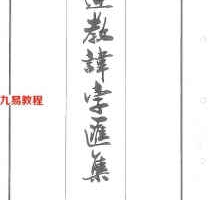 道教諱字匯集
九易教程